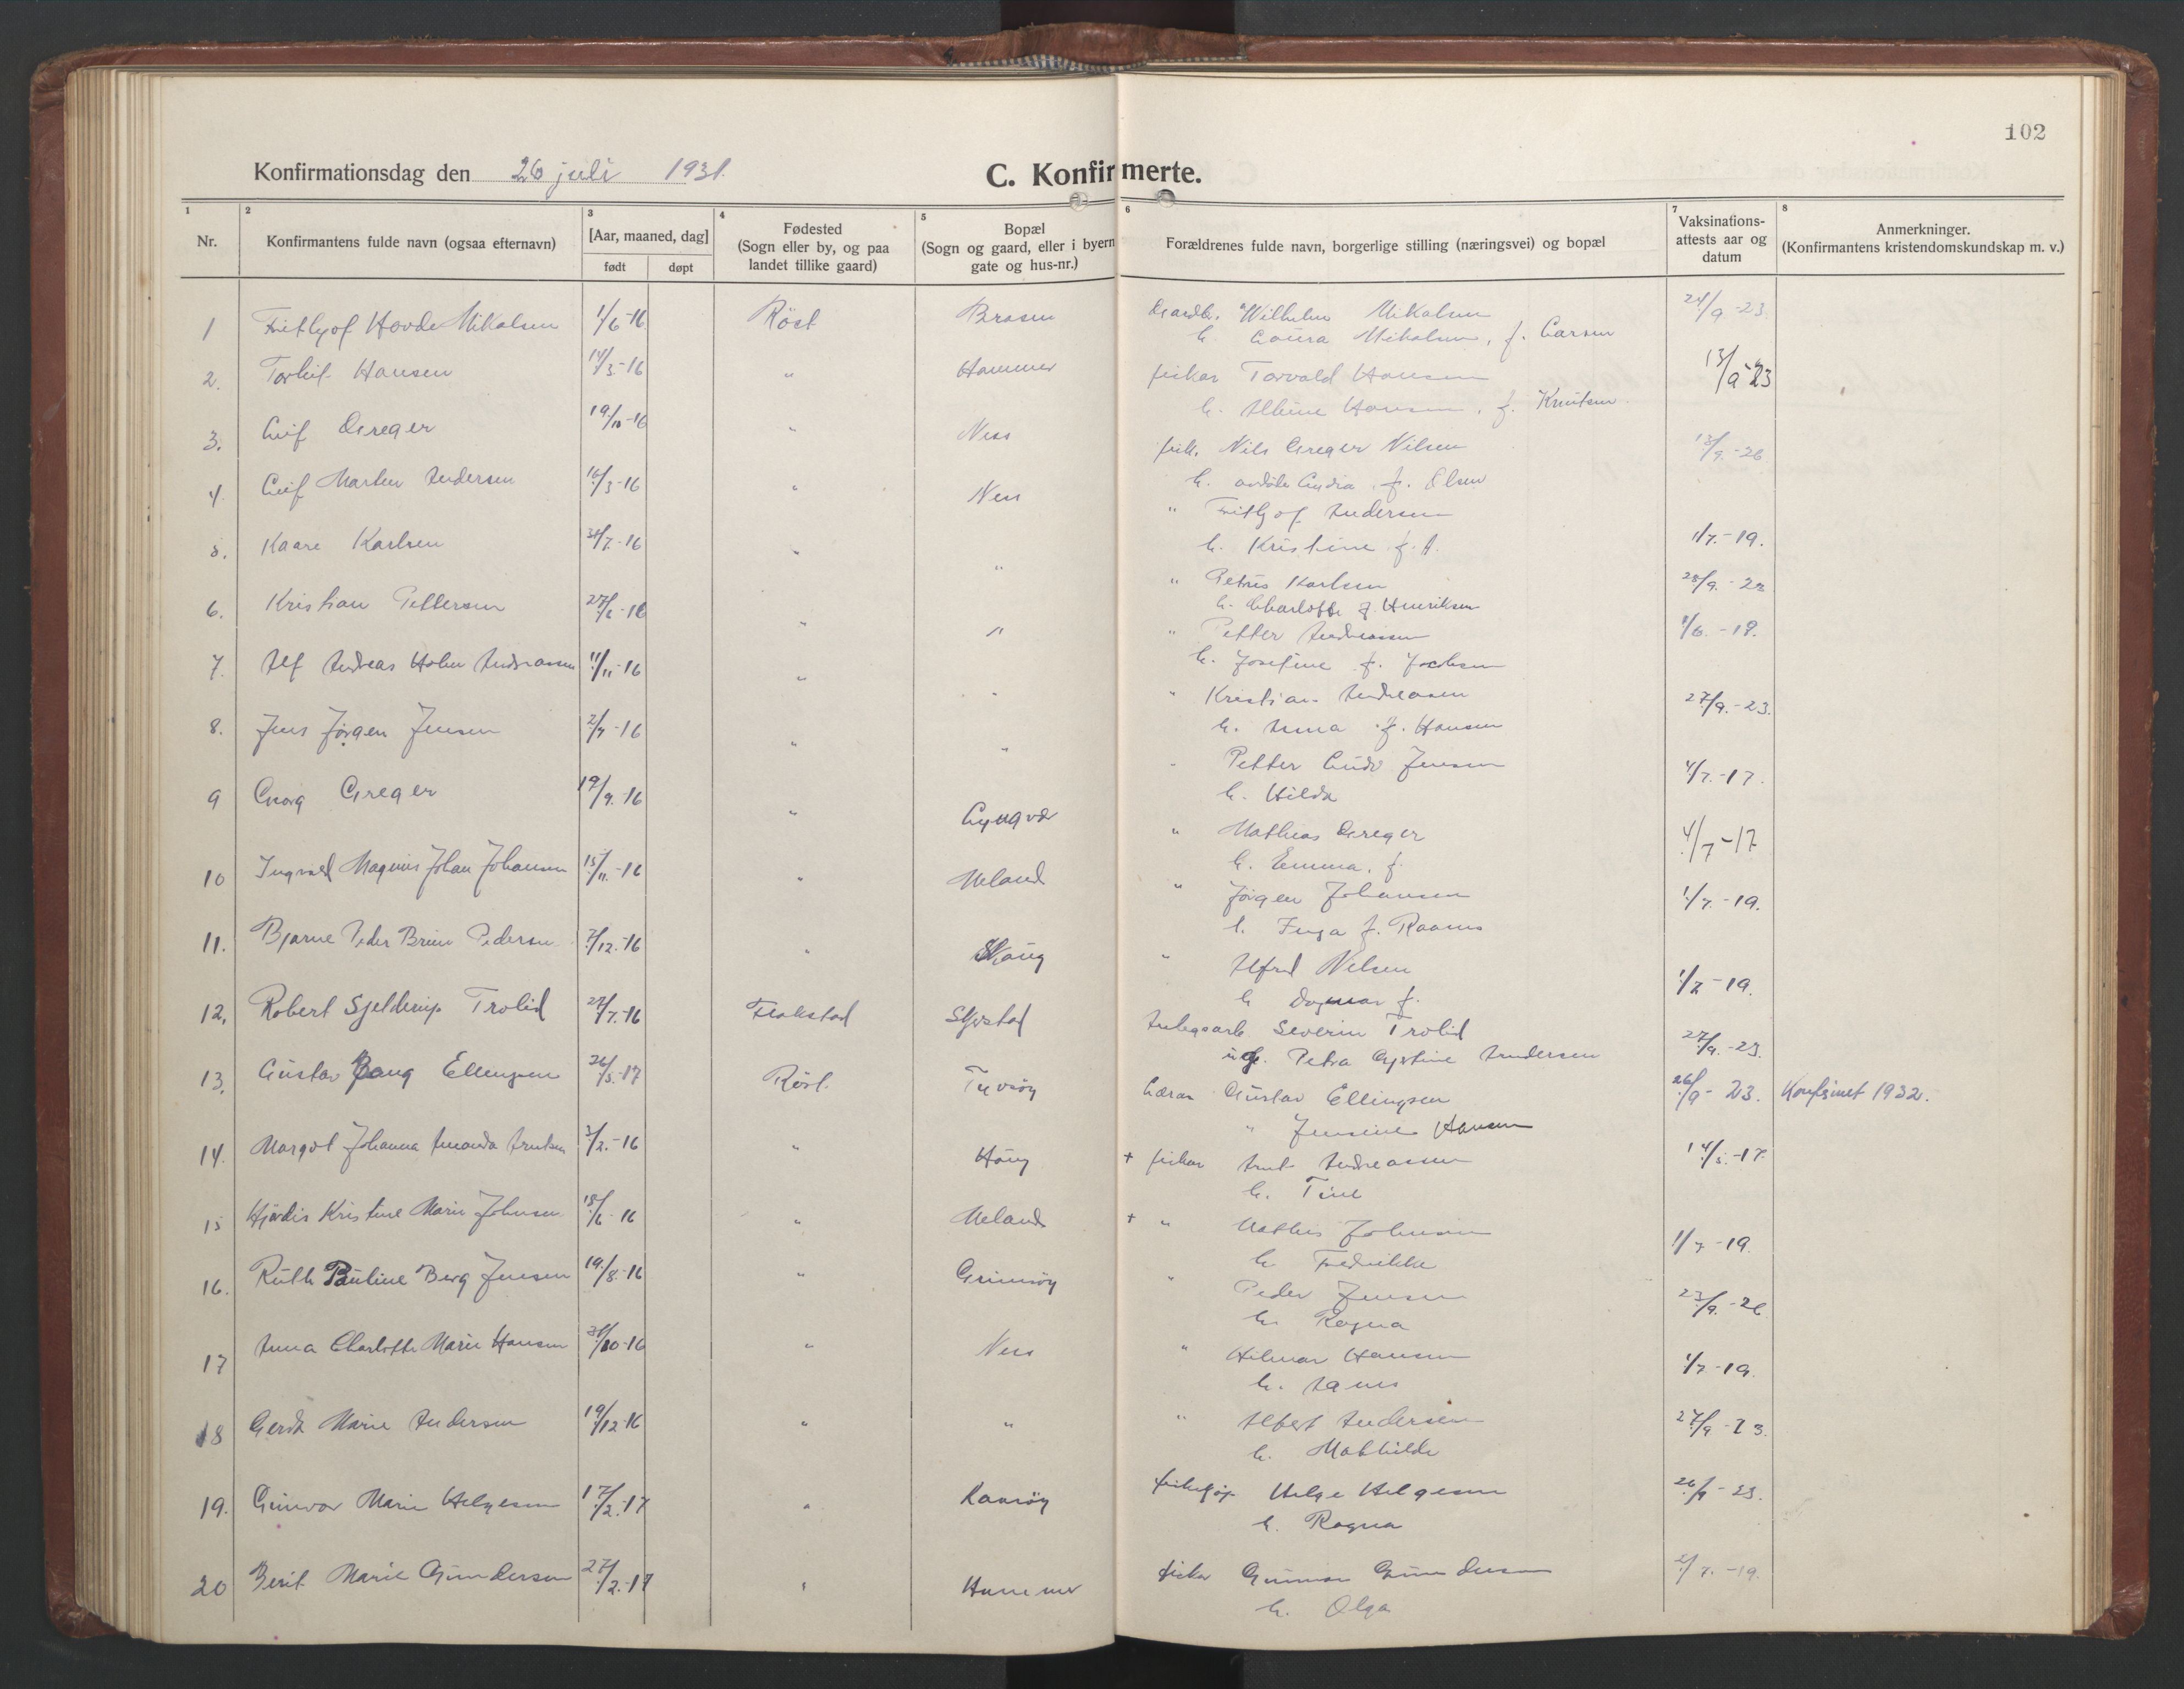 102
Konfirmationsdag den 26 juli 1931.
C. Konfirmerte.
1 2 3 4 5 6 7 8
Nr.
Konfirmantens fulde navn (ogsaa efternavn)
[Aar, maaned, dag]
født døpt
Fødested
(Sogn eller by, og paa
landet tillike gaard)
Bopæl
(Sogn og gaard, eller i byern
gate og hus-nr.)
Forældrenes fulde navn, borgerlige stilling (næringsvei) og bopæl
Vaksinations-
attests aar og
datum
Anmerkninger.
(Konfirmantens kristendomskundskap m. v.)
1 Frithjof Hovde Mikalsen 1/6-16 Röst Brasen Wilhelm Mikalsen 24/9-23.
h. Laura Mikalsen, f. Larsen
2. Torleif Hansen 14/3-16 " Hammer fisker Torvald Hansen 13/9-23
h. Hansen, f. Knutsen.
3. Leif Greger 19/10-16 " Ness fisk. Nils Greger Nilsen 13/9.-26
h. f. Olsen
4. Leif Marten Andersen 16/3-16 " Ness " Fritjof Andersen 1/7.-19.
h. Kristine f. A.
5. Kaare Karlsen 31/7.-16 " " " Petrus Karlsen
h. Charlotte f. Henriksen
6. Kristian Pettersen " " " Petter Andreassen 1/6.-19.
h. Josefine f.
7. Alf Andreas Holm Andreassen 11/11-16 " " " Kristian Andreasen 27/9.-23.
h. Anna f. Hansen
8. Jens Jörgen Jensen 2/7-16 " " " Petter Jensen 4/7.-17.
h. Hilda
9 Georg Greger 19/9.-16 " Lyngvær " Mathias Greger 4/7-17
h. Emma, f.
10 Ingvald Magnus Johan Johansen 15/11.-16 " Meland " Jörgen Johansen 1/7.-19.
h. Inga f.
11. Bjarne Peder Pedersen 7/12.-16 " " Alfred Nilsen 1/7-19.
h Dagmar f.
12. Robert Sjelderup Trolid 27/7.-16 Flakstad Severin Trolid 27/9.-23.
Petra Andersen
13. Gustav Bang Ellingsen 26/5.-17 Röst. Gustav Ellingsen 26/9-23. Konfirmert 1932.
" Jensine Hansen
14. Margot Johanna Amanda Arntsen 3/2.-16 " + fisker Arnt Andreassen 14/5.-17.
h. Tine
15 Hjördis Kristine Marie Johnsen 18/6-16 " Meland + " Mathis Johnsen 1/7-19.
h Fredrikke
16. Ruth Pauline Berg Jensen 19/8-16 " Grimsöy " Peder Jensen 23/9.-26
h. Ragna
17 Anna Charlotte Marie Hansen 31/10-16 " Ness " Hilmar Hansen 1/7-19.
h. Agnes
18 Gerda Marie Andersen 19/12-16 " " " Albert Andersen 27/9-23.
h. Mathilde
19. Gunvor Marie Helgesen 17/2.-17 " Helge Helgesen 26/9-23.
h. Ragna
20 Berit Marie Gundersen 27/2.-17 " Hammer fisker Gunnar Gundersen 2/7.-19.
h. Olga